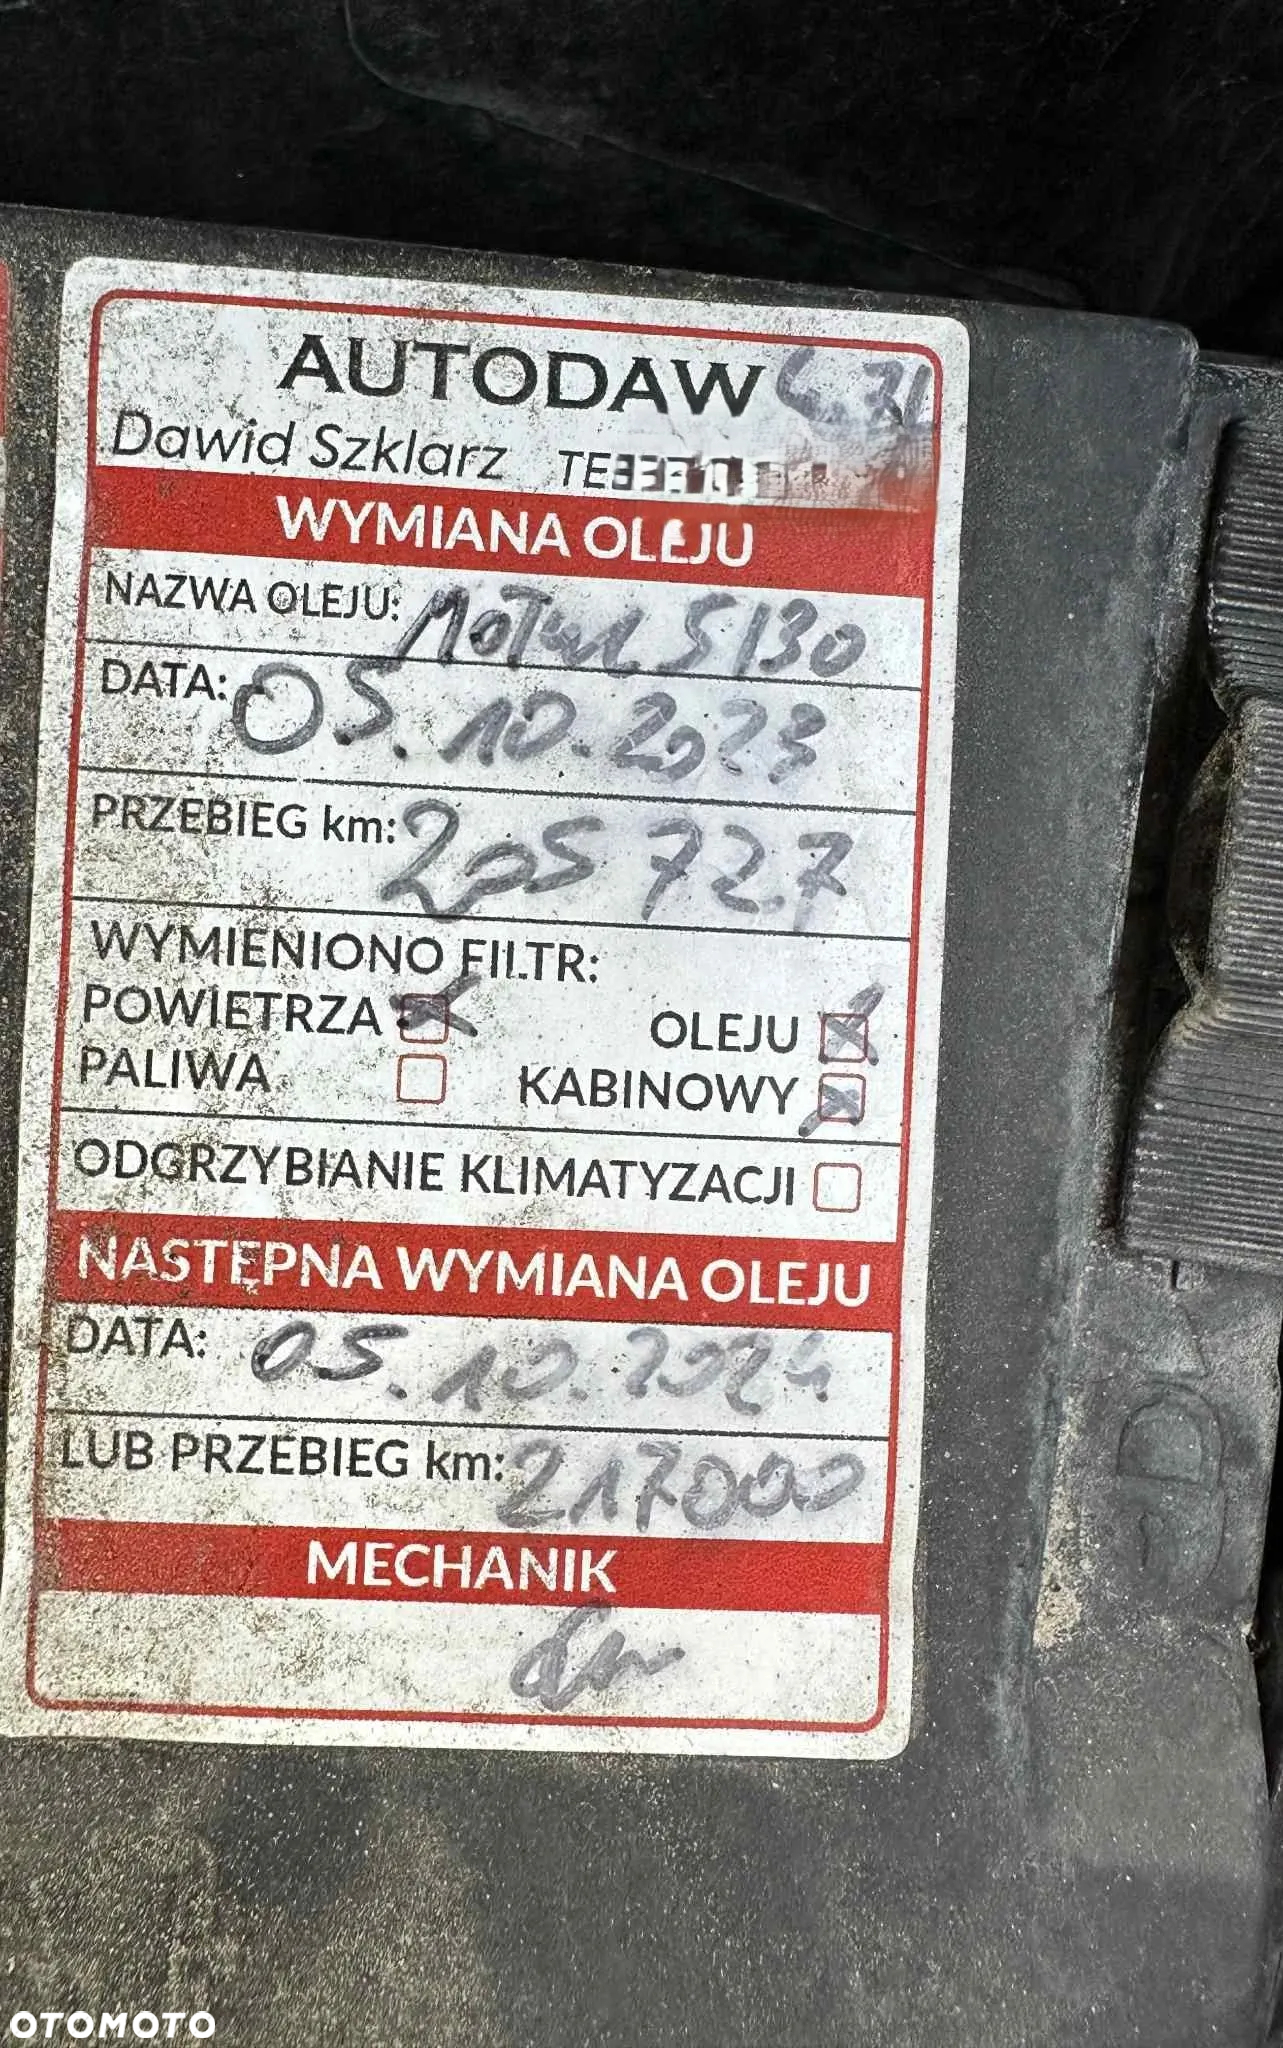 AUTODAW
Dawid Szklarz
WYMIANA OLEJU
NAZWA OLEJU: MOTUL 5/30
DATA: 05.10.2023
PRZEBIEG km: 205 727
WYMIENIONO FILTR:
POWIETRZA OLEJU
PALIWA KABINOWY
ODGRZYBIANIE KLIMATYZACJI
NASTĘPNA WYMIANA OLEJU
DATA: 05.10.2024
LUB PRZEBIEG km: 217000
MECHANIK
OTOMOTO